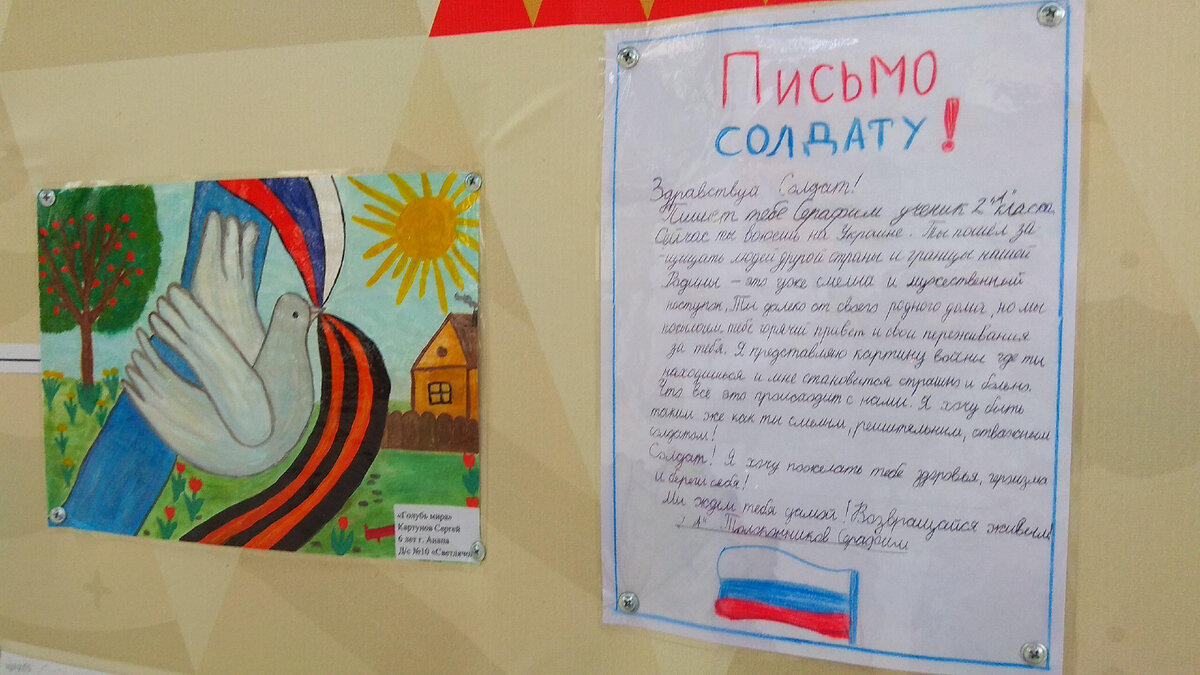 «Голубь мира»
Картунов Сергей
6 лет г. Анапа
Д/с №10 «Светлячо
Письмо
солдату!
Здравствуй Солдат!
Пишет тебе Серафим ученик 2 "А" класса.
Сейчас ты воюешь на Украине. Ты пошел за
-щищать людей другой страны и границы нашей
Родины - это уже смелый и мужественный
поступок. Ты далеко от своего родного дома, но мы
посылаем тебе горячий привет и свои переживания
за тебя. Я представляю картину войны где ты
находишься и мне становится страшно и больно.
Что всё это происходит с нами. Я хочу быть
таким же как ты смелым, решительним, отважным
солдатом!
Солдат! Я хочу пожелать тебе здоровья, героизма
и береги себя!
Ми ждем тебя дамой! Возвращайся живым!
2 "А" Толоконников Серафим